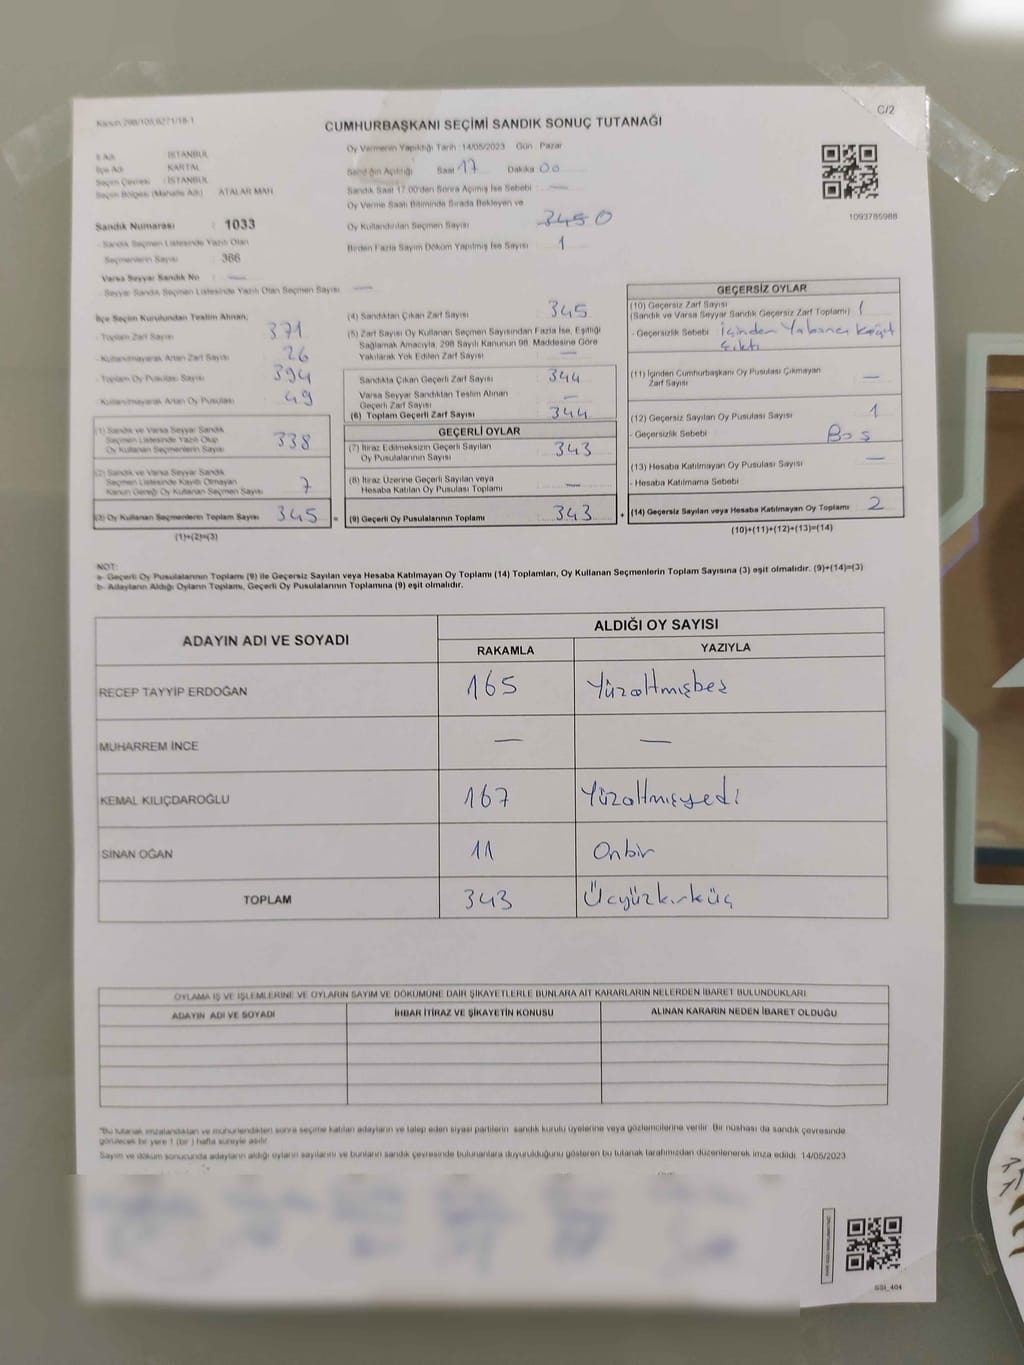 Kanun 298/105,6271/18-1
C/2
CUMHURBAŞKANI SEÇİMİ SANDIK SONUÇ TUTANAĞI
İl Adı : İSTANBUL
İlçe Adı : KARTAL
Seçim Çevresi : İSTANBUL
Seçim Bölgesi (Mahalle Adı) : ATALAR MAH.
Oy Vermenin Yapıldığı Tarih : 14/05/2023 Gün : Pazar
Sandığın Açıldığı Saat 17 Dakika 00
Sandık Saat 17:00'den Sonra Açılmış İse Sebebi : —
Oy Verme Saati Bitiminde Sırada Bekleyen ve
Oy Kullandırılan Seçmen Sayısı 0
Birden Fazla Sayım Döküm Yapılmış İse Sayısı 1
1093785988
Sandık Numarası : 1033
- Sandık Seçmen Listesinde Yazılı Olan
Seçmenlerin Sayısı : 366
Varsa Seyyar Sandık No : —
- Seyyar Sandık Seçmen Listesinde Yazılı Olan Seçmen Sayısı : —
İlçe Seçim Kurulundan Teslim Alınan,
- Toplam Zarf Sayısı : 371
- Kullanılmayarak Artan Zarf Sayısı : 26
- Toplam Oy Pusulası Sayısı : 394
- Kullanılmayarak Artan Oy Pusulası : 49
(1) Sandık ve Varsa Seyyar Sandık
Seçmen Listesinde Yazılı Olup
Oy Kullanan Seçmenlerin Sayısı 338
(2) Sandık ve Varsa Seyyar Sandık
Seçmen Listesinde Kayıtlı Olmayan
Kanun Gereği Oy Kullanan Seçmen Sayısı 7
(3) Oy Kullanan Seçmenlerin Toplam Sayısı : 345
(1)+(2)=(3)
(4) Sandıktan Çıkan Zarf Sayısı : 345
(5) Zarf Sayısı Oy Kullanan Seçmen Sayısından Fazla İse, Eşitliği
Sağlamak Amacıyla, 298 Sayılı Kanunun 98. Maddesine Göre
Yakılarak Yok Edilen Zarf Sayısı : —
Sandıkta Çıkan Geçerli Zarf Sayısı : 344
Varsa Seyyar Sandıktan Teslim Alınan
Geçerli Zarf Sayısı : —
(6) Toplam Geçerli Zarf Sayısı : 344
GEÇERLİ OYLAR
(7) İtiraz Edilmeksizin Geçerli Sayılan
Oy Pusulalarının Sayısı : 343
(8) İtiraz Üzerine Geçerli Sayılan veya
Hesaba Katılan Oy Pusulası Toplamı : —
= (9) Geçerli Oy Pusulalarının Toplamı : 343
GEÇERSİZ OYLAR
(10) Geçersiz Zarf Sayısı
(Sandık ve Varsa Seyyar Sandık Geçersiz Zarf Toplamı) : 1
- Geçersizlik Sebebi : İçinden Yabancı kağıt
çıktı
(11) İçinden Cumhurbaşkanı Oy Pusulası Çıkmayan
Zarf Sayısı : —
(12) Geçersiz Sayılan Oy Pusulası Sayısı : 1
- Geçersizlik Sebebi : Boş
(13) Hesaba Katılmayan Oy Pusulası Sayısı : —
- Hesaba Katılmama Sebebi :
+ (14) Geçersiz Sayılan veya Hesaba Katılmayan Oy Toplamı : 2
(10)+(11)+(12)+(13)=(14)
NOT:
a- Geçerli Oy Pusulalarının Toplamı (9) ile Geçersiz Sayılan veya Hesaba Katılmayan Oy Toplamı (14) Toplamları, Oy Kullanan Seçmenlerin Toplam Sayısına (3) eşit olmalıdır. (9)+(14)=(3)
b- Adayların Aldığı Oyların Toplamı, Geçerli Oy Pusulalarının Toplamına (9) eşit olmalıdır.
ADAYIN ADI VE SOYADI
ALDIĞI OY SAYISI
RAKAMLA YAZIYLA
RECEP TAYYİP ERDOĞAN 165 Yüzaltmışbeş
MUHARREM İNCE — —
KEMAL KILIÇDAROĞLU 167 Yüzaltmışyedi
SİNAN OĞAN 11 Onbir
TOPLAM 343 Üçyüzkırküç
OYLAMA İŞ VE İŞLEMLERİNE VE OYLARIN SAYIM VE DÖKÜMÜNE DAİR ŞİKAYETLERLE BUNLARA AİT KARARLARIN NELERDEN İBARET BULUNDUKLARI
ADAYIN ADI VE SOYADI İHBAR İTİRAZ VE ŞİKAYETİN KONUSU ALINAN KARARIN NEDEN İBARET OLDUĞU
*Bu tutanak imzalandıktan ve mühürlendikten sonra seçime katılan adayların ve talep eden siyasi partilerin sandık kurulu üyelerine veya gözlemcilerine verilir. Bir nüshası da sandık çevresinde
görülecek bir yere 1 (bir) hafta süreyle asılır.
Sayım ve döküm sonucunda adayların aldığı oyların sayılarını ve bunların sandık çevresinde bulunanlara duyurulduğunu gösteren bu tutanak tarafımızdan düzenlenerek imza edildi. 14/05/2023
GSI_404